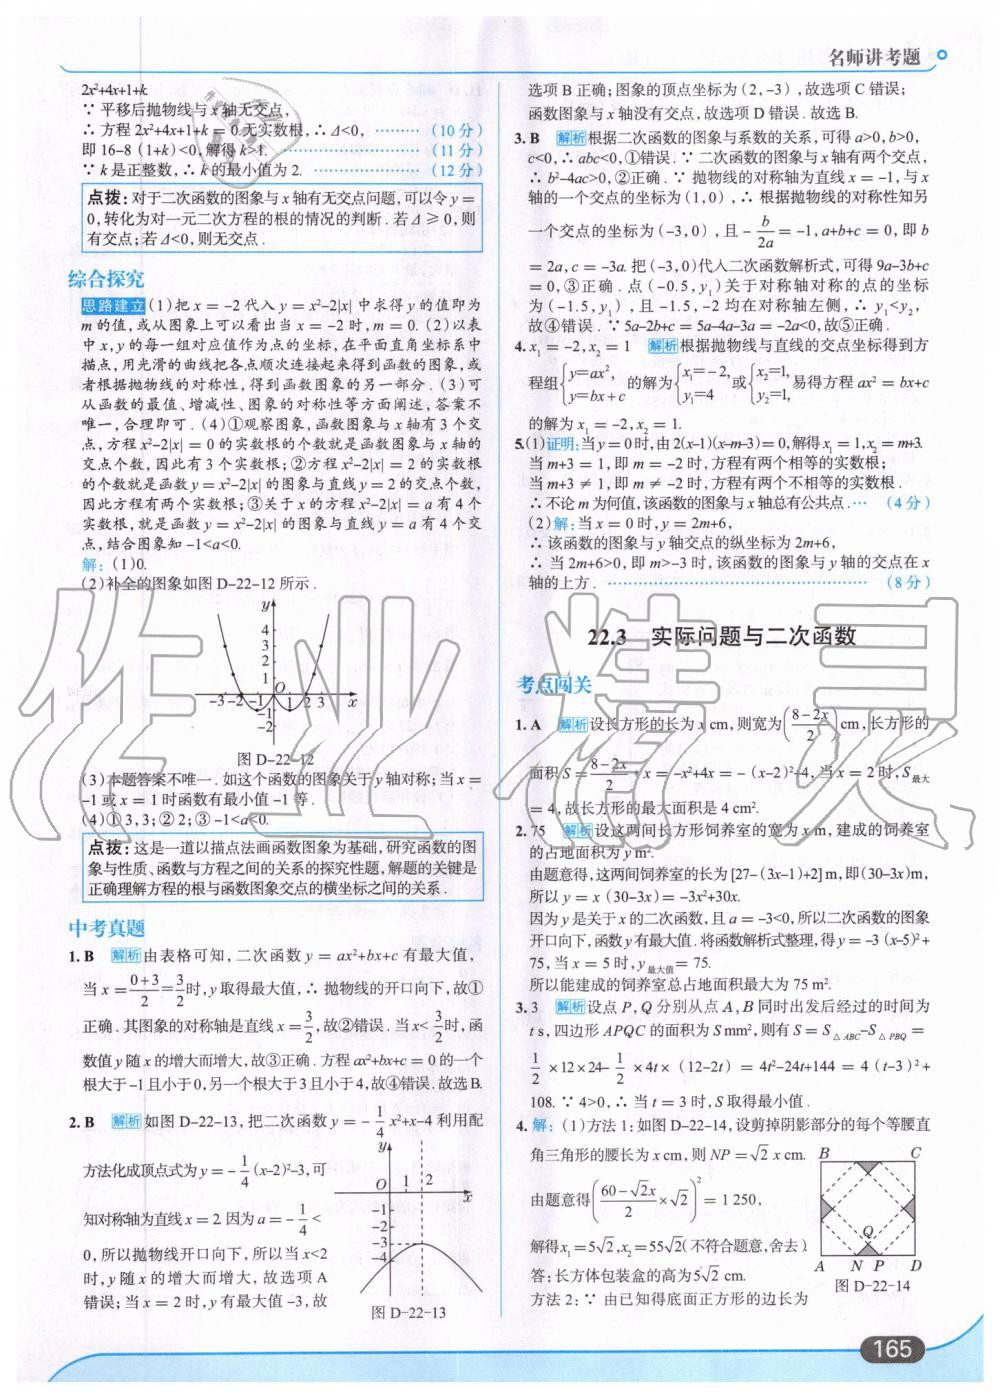 名师讲考题
2x²+4x+1+k.
∵ 平移后抛物线与 x 轴无交点,
∴ 方程 2x²+4x+1+k = 0 无实数根,∴ Δ<0, ……… (10 分)
即 16-8 (1+k)<0,解得 k>1. ……… (11 分)
∵ k 是正整数,∴ k 的最小值为 2. ……… (12 分)
点拨: 对于二次函数的图象与 x 轴有无交点问题,可以令 y =
0,转化为对一元二次方程的根的情况的判断 . 若 Δ ≥ 0,则
有交点;若 Δ<0,则无交点 .
综合探究
思路建立 (1)把 x = -2 代入 y = x²-2|x| 中求得 y 的值即为
m 的值,或从图象上可以看出当 x = -2 时,m = 0. (2)以表
中 x,y 的每一组对应值作为点的坐标,在平面直角坐标系中
描点,用光滑的曲线把各点顺次连接起来得到函数的图象,或
者根据抛物线的对称性,得到函数图象的另一部分 . (3)可
从函数的最值、增减性、图象的对称性等方面阐述,答案不
唯一,合理即可 . (4)①观察图象,函数图象与 x 轴有 3 个交
点,方程 x²-2|x| = 0 的实数根的个数就是函数图象与 x 轴的
交点个数,因此有 3 个实数根;②方程 x²-2|x| = 2 的实数根
的个数就是函数 y = x²-2|x| 的图象与直线 y = 2 的交点个数,
因此方程有两个实数根;③关于 x 的方程 x²-2|x| = a 有 4 个
实数根,就是函数 y = x²-2|x| 的图象与直线 y = a 有 4 个交
点,结合图象知 -1<a<0.
解: (1)0.
(2)补全的图象如图 D-22-12 所示 .
y
4
3
2
1
-3 -2 -1 O 1 2 3 x
-1
-2
图 D-22-12
(3)本题答案不唯一 . 如这个函数的图象关于 y 轴对称;当 x =
-1 或 x = 1 时函数有最小值 -1 等 .
(4)① 3,3;② 2;③ -1<a<0.
点拨: 这是一道以描点法画函数图象为基础,研究函数的图
象与性质、函数与方程之间的关系的探究性题,解题的关键是
正确理解方程的根与函数图象交点的横坐标之间的关系 .
中考真题
1. B 解析 由表格可知,二次函数 y = ax²+bx+c 有最大值,
当 x = (0+3)/2 = 3/2 时,y 取得最大值,∴ 抛物线的开口向下,故①
正确 . 其图象的对称轴是直线 x = 3/2,故②错误 . 当 x< 3/2 时,函
数值 y 随 x 的增大而增大,故③正确 . 方程 ax²+bx+c = 0 的一个
根大于 -1 且小于 0,另一个根大于 3 且小于 4,故④错误. 故选 B.
2. B 解析 如图 D-22-13,把二次函数 y = - 1/4 x²+x-4 利用配
方法化成顶点式为 y = - 1/4 (x-2)²-3,可
知对称轴为直线 x = 2. 因为 a = - 1/4 <
0,所以抛物线开口向下,所以当 x<2
时,y 随 x 的增大而增大,故选项 A
错误;当 x = 2 时,y 有最大值 -3,故
y
O 1 2 x
-1
-2
-3
-4
图 D-22-13
选项 B 正确;图象的顶点坐标为 (2,-3),故选项 C 错误;
函数图象与 x 轴没有交点,故选项 D 错误 . 故选 B.
3. B 解析 根据二次函数的图象与系数的关系,可得 a>0,b>0,
c<0,∴ abc<0,①错误 . ∵ 二次函数的图象与 x 轴有两个交点,
∴ b²-4ac>0,②正确 . ∵ 抛物线的对称轴为直线 x = -1,与 x
轴的一个交点的坐标为 (1,0),∴ 根据抛物线的对称性知另
一个交点的坐标为 (-3,0),且 - b/2a = -1,a+b+c = 0,即 b
= 2a,c = -3a. 把 (-3,0)代入二次函数解析式,可得 9a-3b+c
= 0,③正确 . 点 (-0.5,y₁)关于对称轴对称的点的坐标
为 (-1.5,y₁),且 -1.5,-2 均在对称轴左侧,∴ y₁<y₂,
故④错误 . ∵ 5a-2b+c = 5a-4a-3a = -2a<0,故⑤正确 .
4. x₁ = -2,x₂ = 1 解析 根据抛物线与直线的交点坐标得到方
程组 {y=ax², y=bx+c 的解为 {x₁=-2, y₁=4 或 {x₂=1, y₂=1, 易得方程 ax² = bx+c
的解为 x₁ = -2,x₂ = 1.
5. (1)证明:当 y = 0 时,由 2(x-1)(x-m-3)= 0,解得 x₁ = 1,x₂ = m+3.
当 m+3 = 1,即 m = -2 时,方程有两个相等的实数根;
当 m+3 ≠ 1,即 m ≠ -2 时,方程有两个不相等的实数根 .
∴ 不论 m 为何值,该函数的图象与 x 轴总有公共点 . … (4 分)
(2)解:当 x = 0 时,y = 2m+6,
∴ 该函数的图象与 y 轴交点的纵坐标为 2m+6,
∴ 当 2m+6>0,即 m>-3 时,该函数的图象与 y 轴的交点在 x
轴的上方 . ……………… (8 分)
22.3 实际问题与二次函数
考点闯关
1. A 解析 设长方形的长为 x cm,则宽为 ((8-2x)/2) cm,长方形的
面积 S = (8-2x)/2 · x = -x²+4x = - (x-2)²+4,当 x = 2 时,S最大
= 4,故长方形的最大面积是 4 cm².
2. 75 解析 设这两间长方形饲养室的宽为 x m,建成的饲养室
的占地面积为 y m².
由题意得,这两间饲养室的长为 [27-(3x-1)+2] m,即(30-3x)m,
所以 y = x (30-3x)= -3x²+30x.
因为 y 是关于 x 的二次函数,且 a = -3<0,所以二次函数的图象
开口向下,函数 y 有最大值 . 将函数解析式整理,得 y = -3 (x-5)²+
75,当 x = 5 时,y最大值 = 75.
所以能建成的饲养室总占地面积最大为 75 m².
3. 3 解析 设点 P,Q 分别从点 A,B 同时出发后经过的时间为
t s,四边形 APQC 的面积为 S mm²,则有 S = S△ABC-S△PBQ =
1/2 ×12×24- 1/2 ×4t× (12-2t) = 4t²-24t+144 = 4 (t-3)²+
108. ∵ 4>0,∴ 当 t = 3 时,S 取得最小值 .
4. 解: (1)方法 1:如图 D-22-14,设剪掉阴影部分的每个等腰直
角三角形的腰长为 x cm,则 NP = √2 x cm.
由题意得 ((60-√2x)/2 ×√2)² = 1 250,
解得 x₁ = 5√2,x₂ = 55√2(不符合题意,舍去).
答:长方体包装盒的高为 5√2 cm.
方法 2: ∵ 由已知得底面正方形的边长为
B C
Q
A N P D
图 D-22-14
165
作业精灵